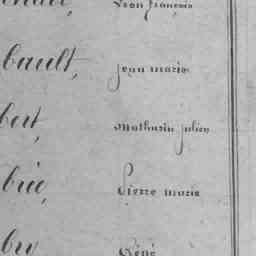 Léon françois
bault, Jean marie
bert, Mathurin julien
brie, Pierre marie
Réné